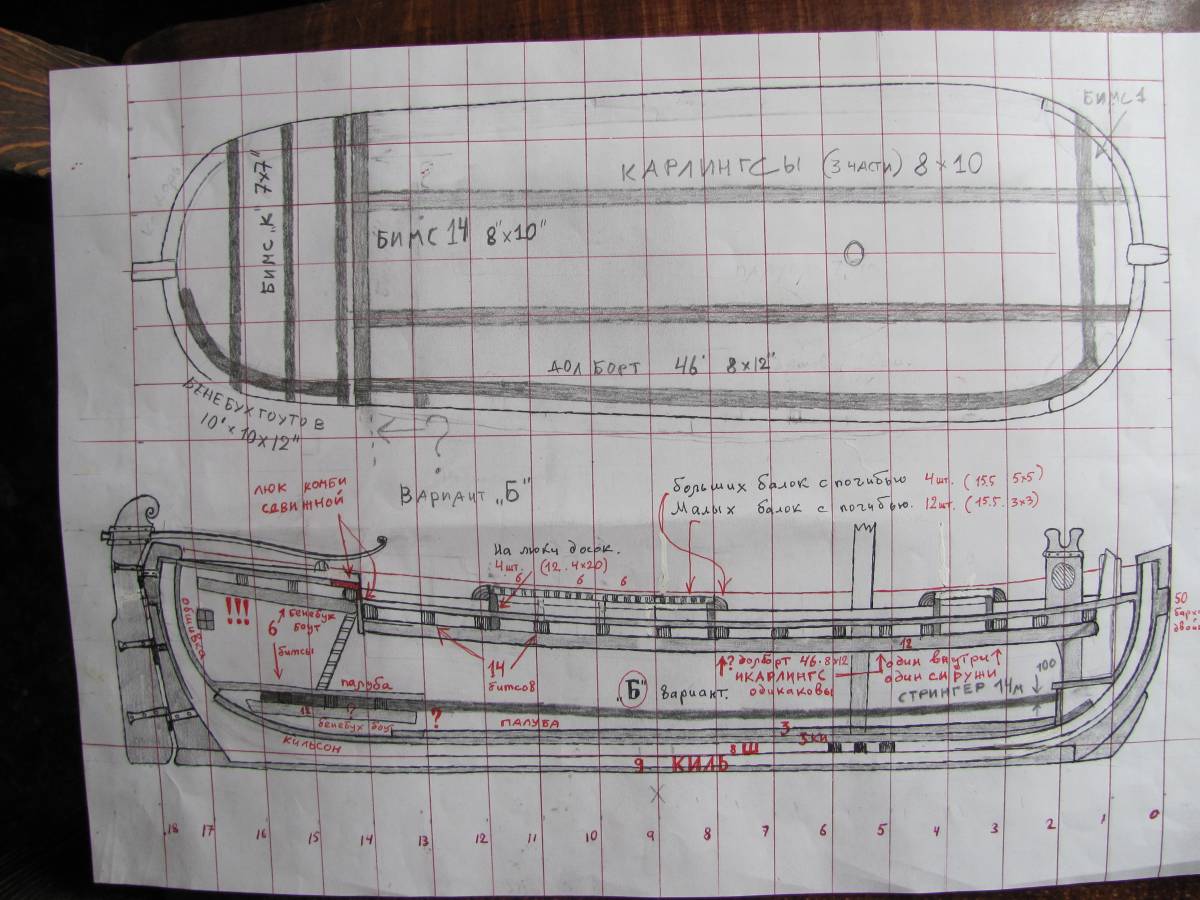 БИМС 1
КАРЛИНГСЫ (3 ЧАСТИ) 8×10
БИМС „К" 7×7"
БИМС 14 8"×10"
ДОЛ БОРТ 46' 8×12"
БЕНЕБУХГОУТОВ
10'×10×12"
?
ЛЮК КОМБИ
СДВИЖНОЙ
ВАРИАНТ „Б"
больших балок с погибью 4шт. (15.5 5×5)
Малых балок с погибью. 12шт. (15.5. 3×3)
На люки досок.
4шт. (12. 4×20)
6 6 6
отливка
!!!
бенебук
боут
6
битсы
палуба
12
?
бенебух боут
КИЛЬСОН
14
битсов
?
ПАЛУБА
„Б" вариант.
? долборт 46.8×12
и КАРЛИНГС
одикаковы
12
один внутри
один снружи
СТРИНГЕР 14м
100
50
барх
двой
3
3 КИ
8 Ш
9 КИЛЬ
X
18 17 16 15 14 13 12 11 10 9 8 7 6 5 4 3 2 1 0